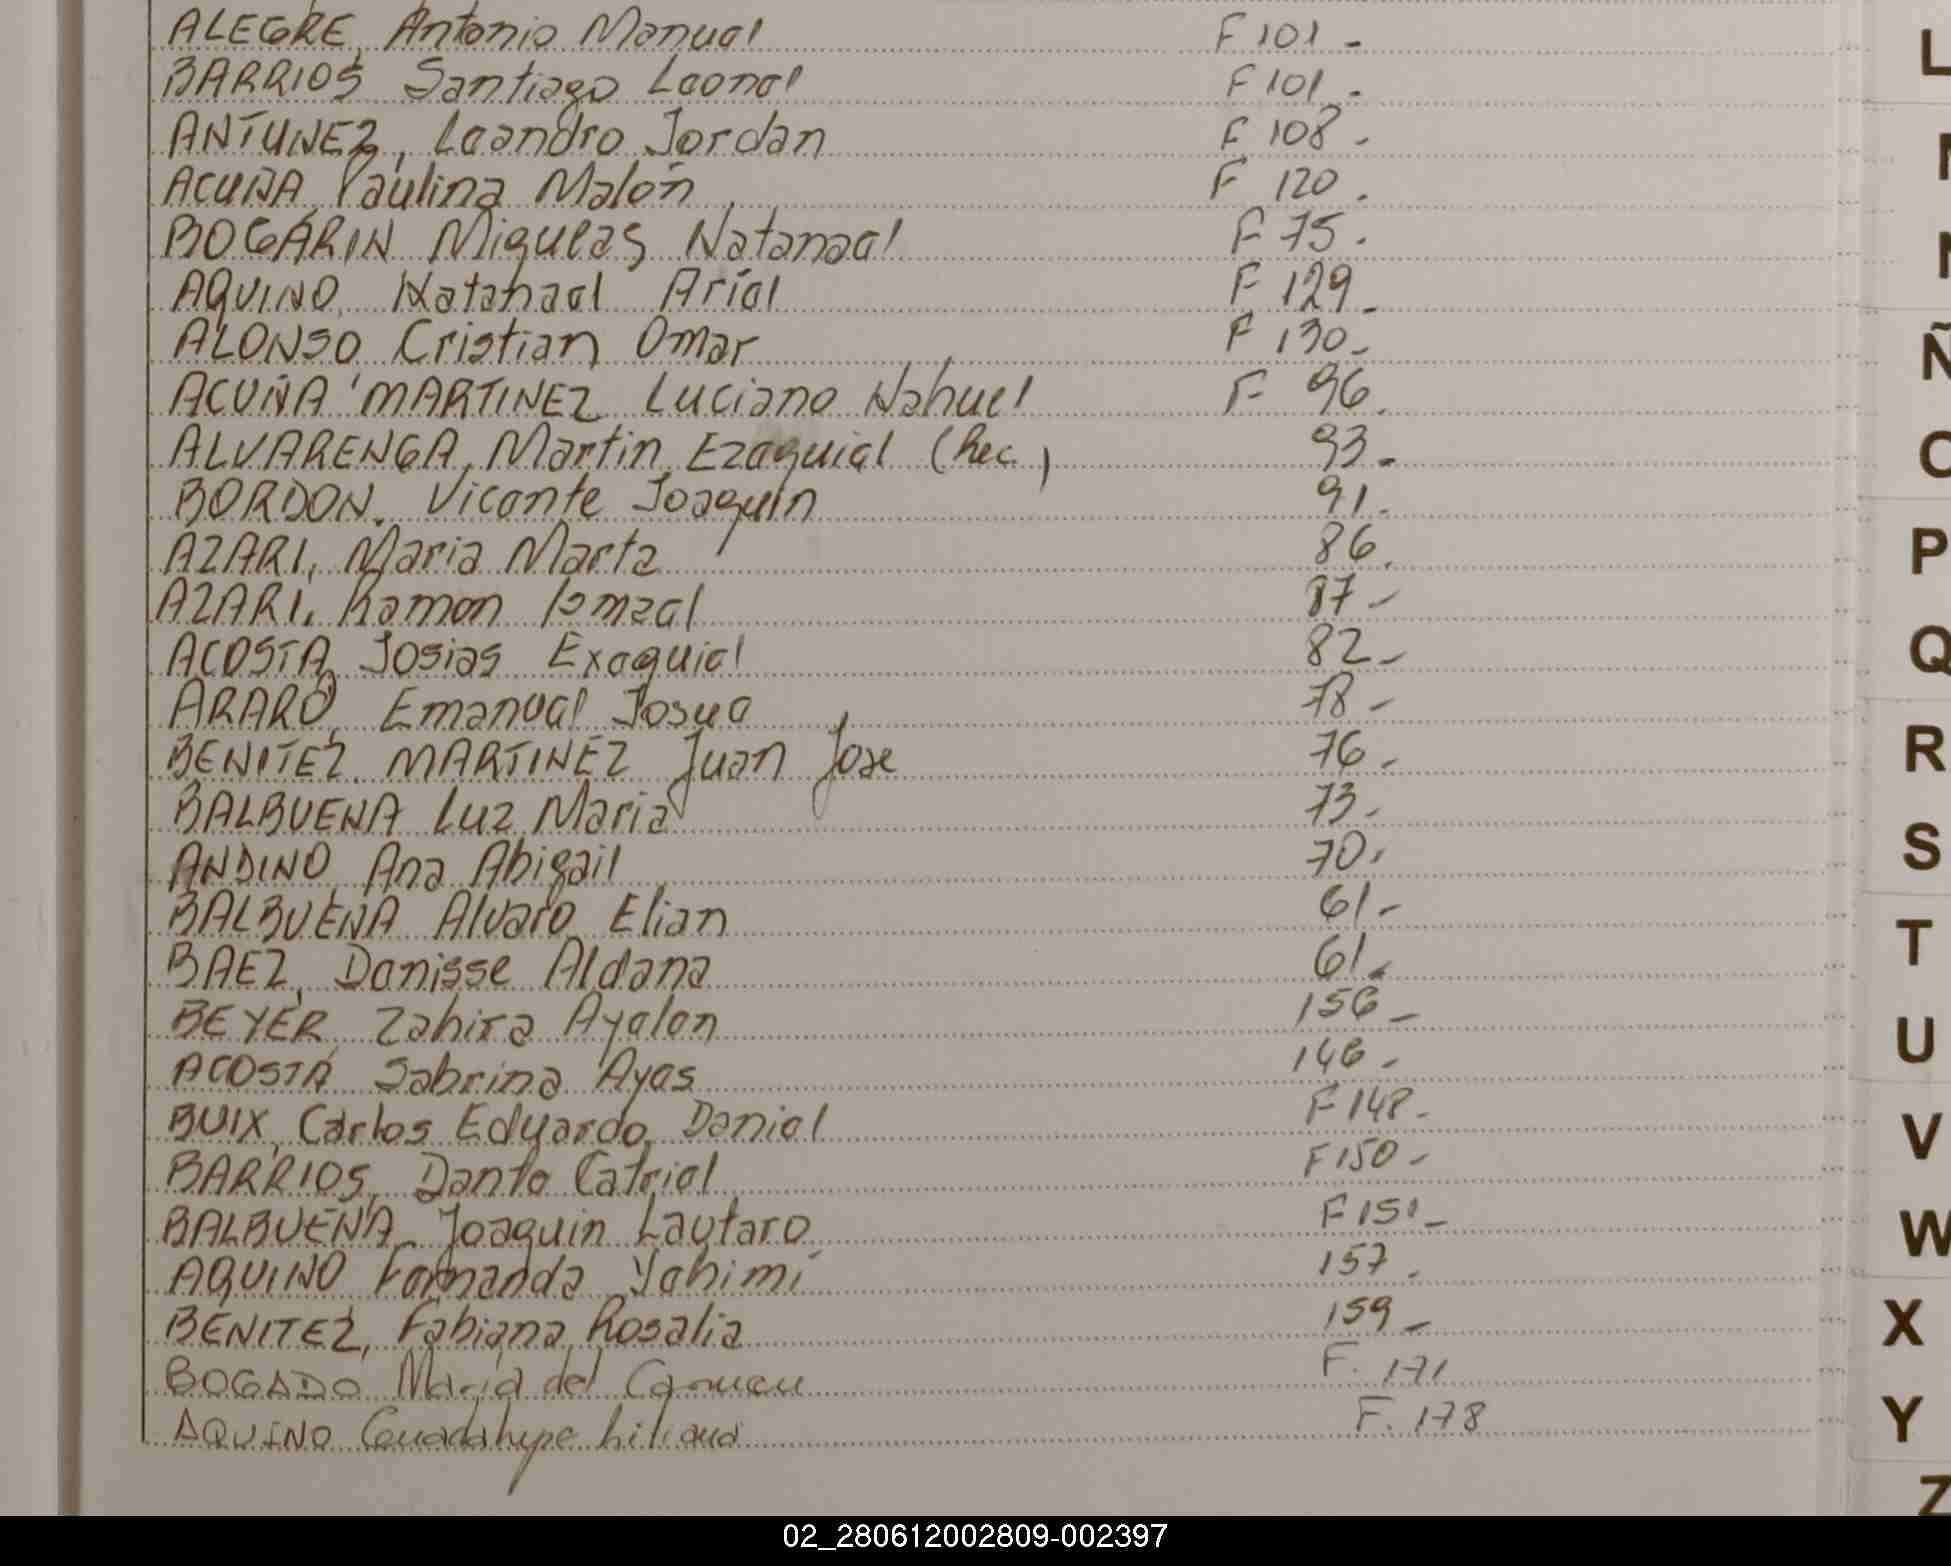 ALEGRE, Antonio Manuel F 101 -
BARRIOS Santiago Leonel F 101 .
ANTUNEZ, Leandro Jordan F 108 -
ACUÑA, Paulina Malén F 120 .
BOGARIN Migueles, Natanael F 75 .
AQUINO, Natanael Ariel F 129 -
ALONSO Cristian Omar F 130 -
ACUÑA MARTINEZ Luciano Nahuel F 96 .
ALVARENGA, Martin, Ezequiel (Rec.) 93 -
BORDON, Vicente Joaquín 91 .
AZARI, Maria Marta 86 .
AZARI, Ramon Ismael 87 -
ACOSTA, Josias Exequiel 82 -
ARARO, Emanuel Josue 78 -
BENITEZ MARTINEZ Juan Jose 76 -
BALBUENA Luz Maria 73 -
ANDINO Ana Abigail 70 .
BALBUENA Alvaro Elian 61 -
BAEZ, Denisse Aldana 61 -
BEYER Zahira Ayelen 156 -
ACOSTA Sabrina Ayes 146 -
BUIX, Carlos Eduardo Daniel F 148 -
BARRIOS, Dante Catriel F 150 -
BALBUENA Joaquin Lautaro F 151 -
AQUINO Fernanda Yohimí 157 .
BENITEZ, Fabiana Rosalia 159 -
BOGADO María del Carmen F. 171
AQUINO Guadalupe Liliana F. 178
L
Ñ
O
P
Q
R
S
T
U
V
W
X
Y
Z
02_280612002809-002397